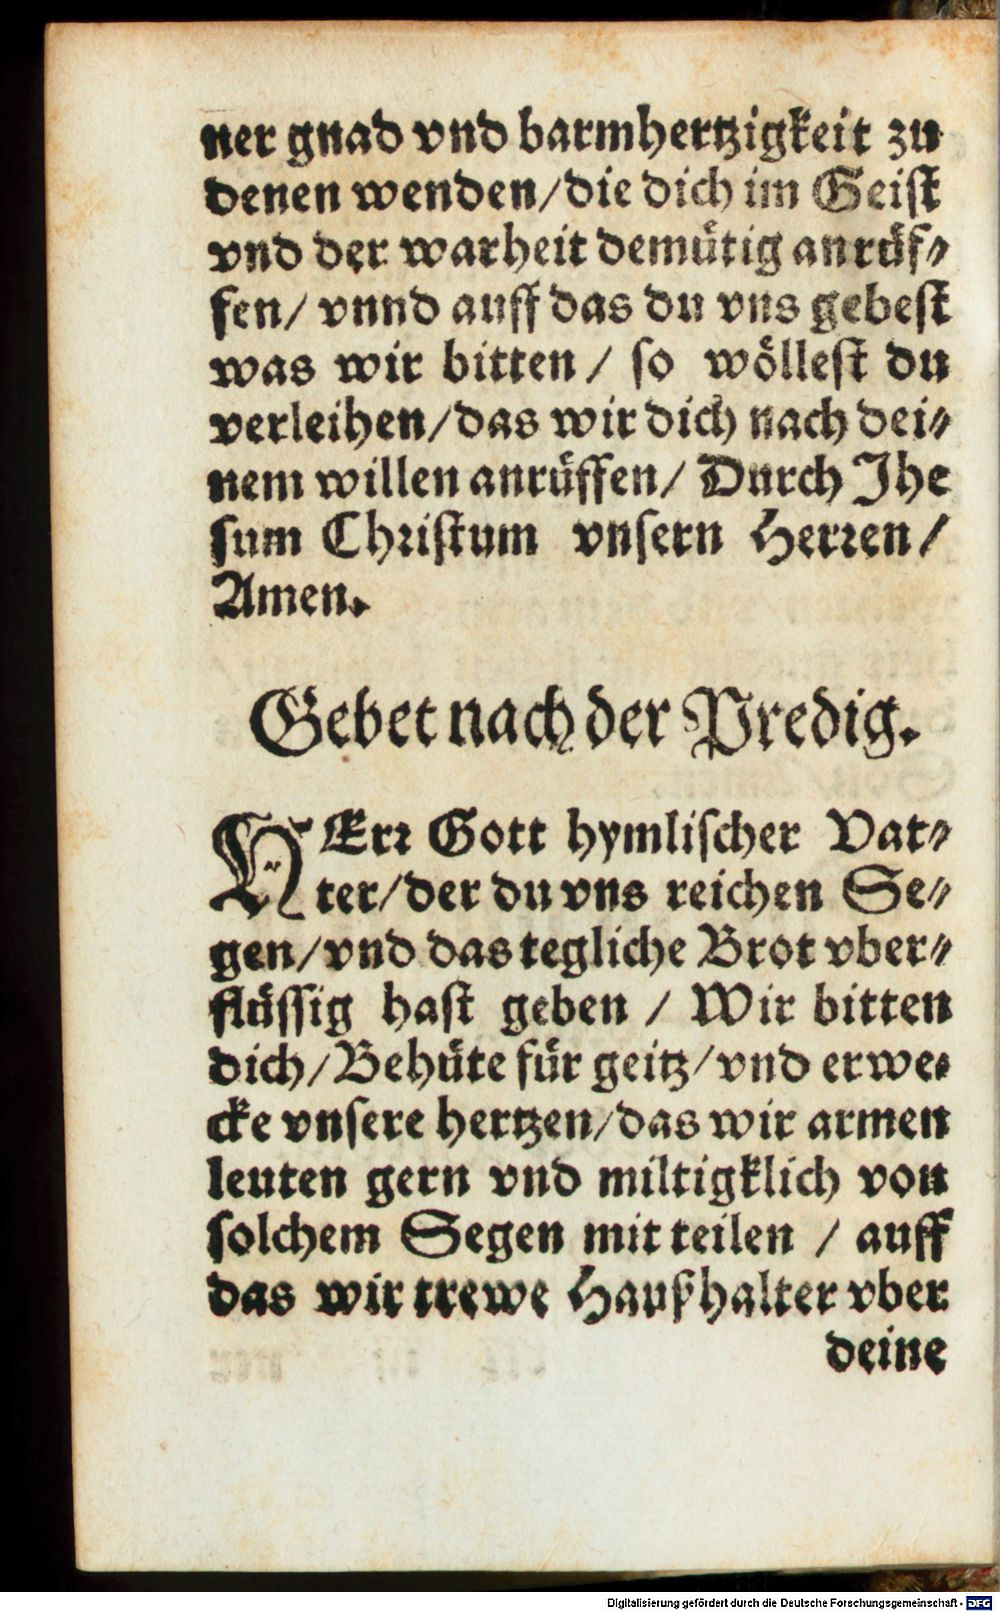 ner gnad vnd barmhertzigkeit zu
denen wenden/die dich im Geist
vnd der warheit demütig anrüf⸗
fen/ vnnd auff das du vns gebest
was wir bitten / so wöllest du
verleihen/das wir dich nach dei⸗
nem willen anrüffen/ Durch Jhe
sum Christum vnsern Herren/
Amen.
Gebet nach der Predig.
HErr Gott hymlischer Vat⸗
ter/der du vns reichen Se⸗
gen/vnd das tegliche Brot vber⸗
flüssig hast geben / Wir bitten
dich/Behüte für geitz/vnd erwe⸗
cke vnsere hertzen/das wir armen
leuten gern vnd miltigklich von
solchem Segen mit teilen / auff
das wir trewe Haußhalter vber
deine
Digitalisierung gefördert durch die Deutsche Forschungsgemeinschaft - DFG